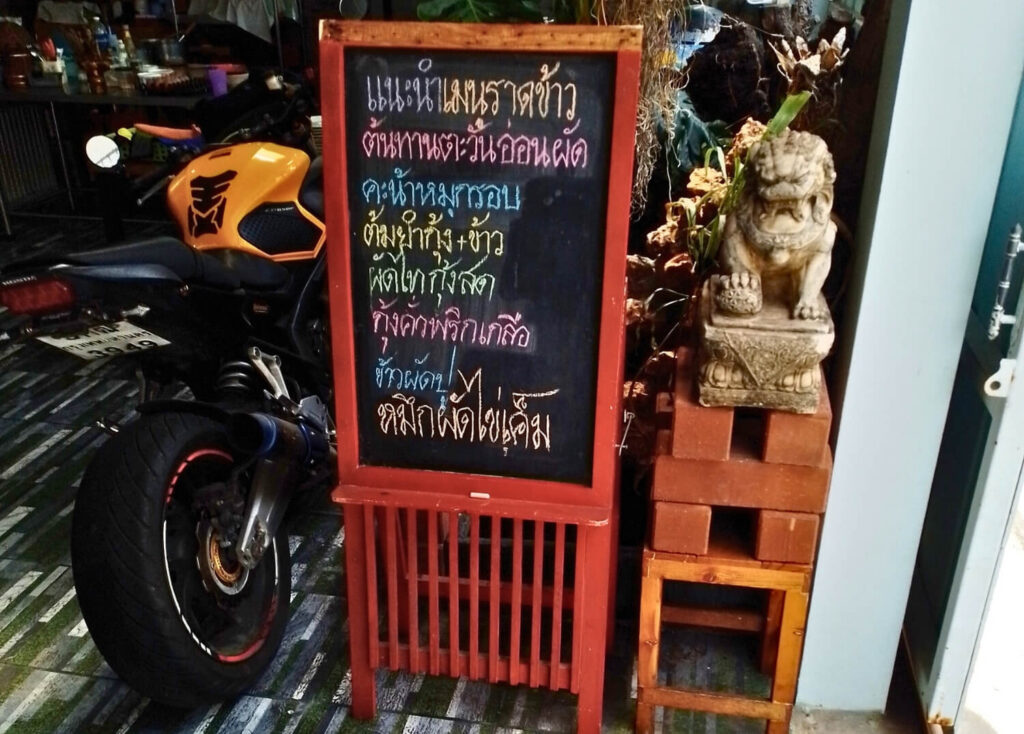 แนะนำเมนูราดข้าว
ต้นทานตะวันอ่อนผัด
คะน้าหมูกรอบ
ต้มยำกุ้ง+ข้าว
ผัดไทกุ้งสด
กุ้งคั่วพริกเกลือ
ข้าวผัดปู
หมึกผัดไข่เค็ม
HONDA